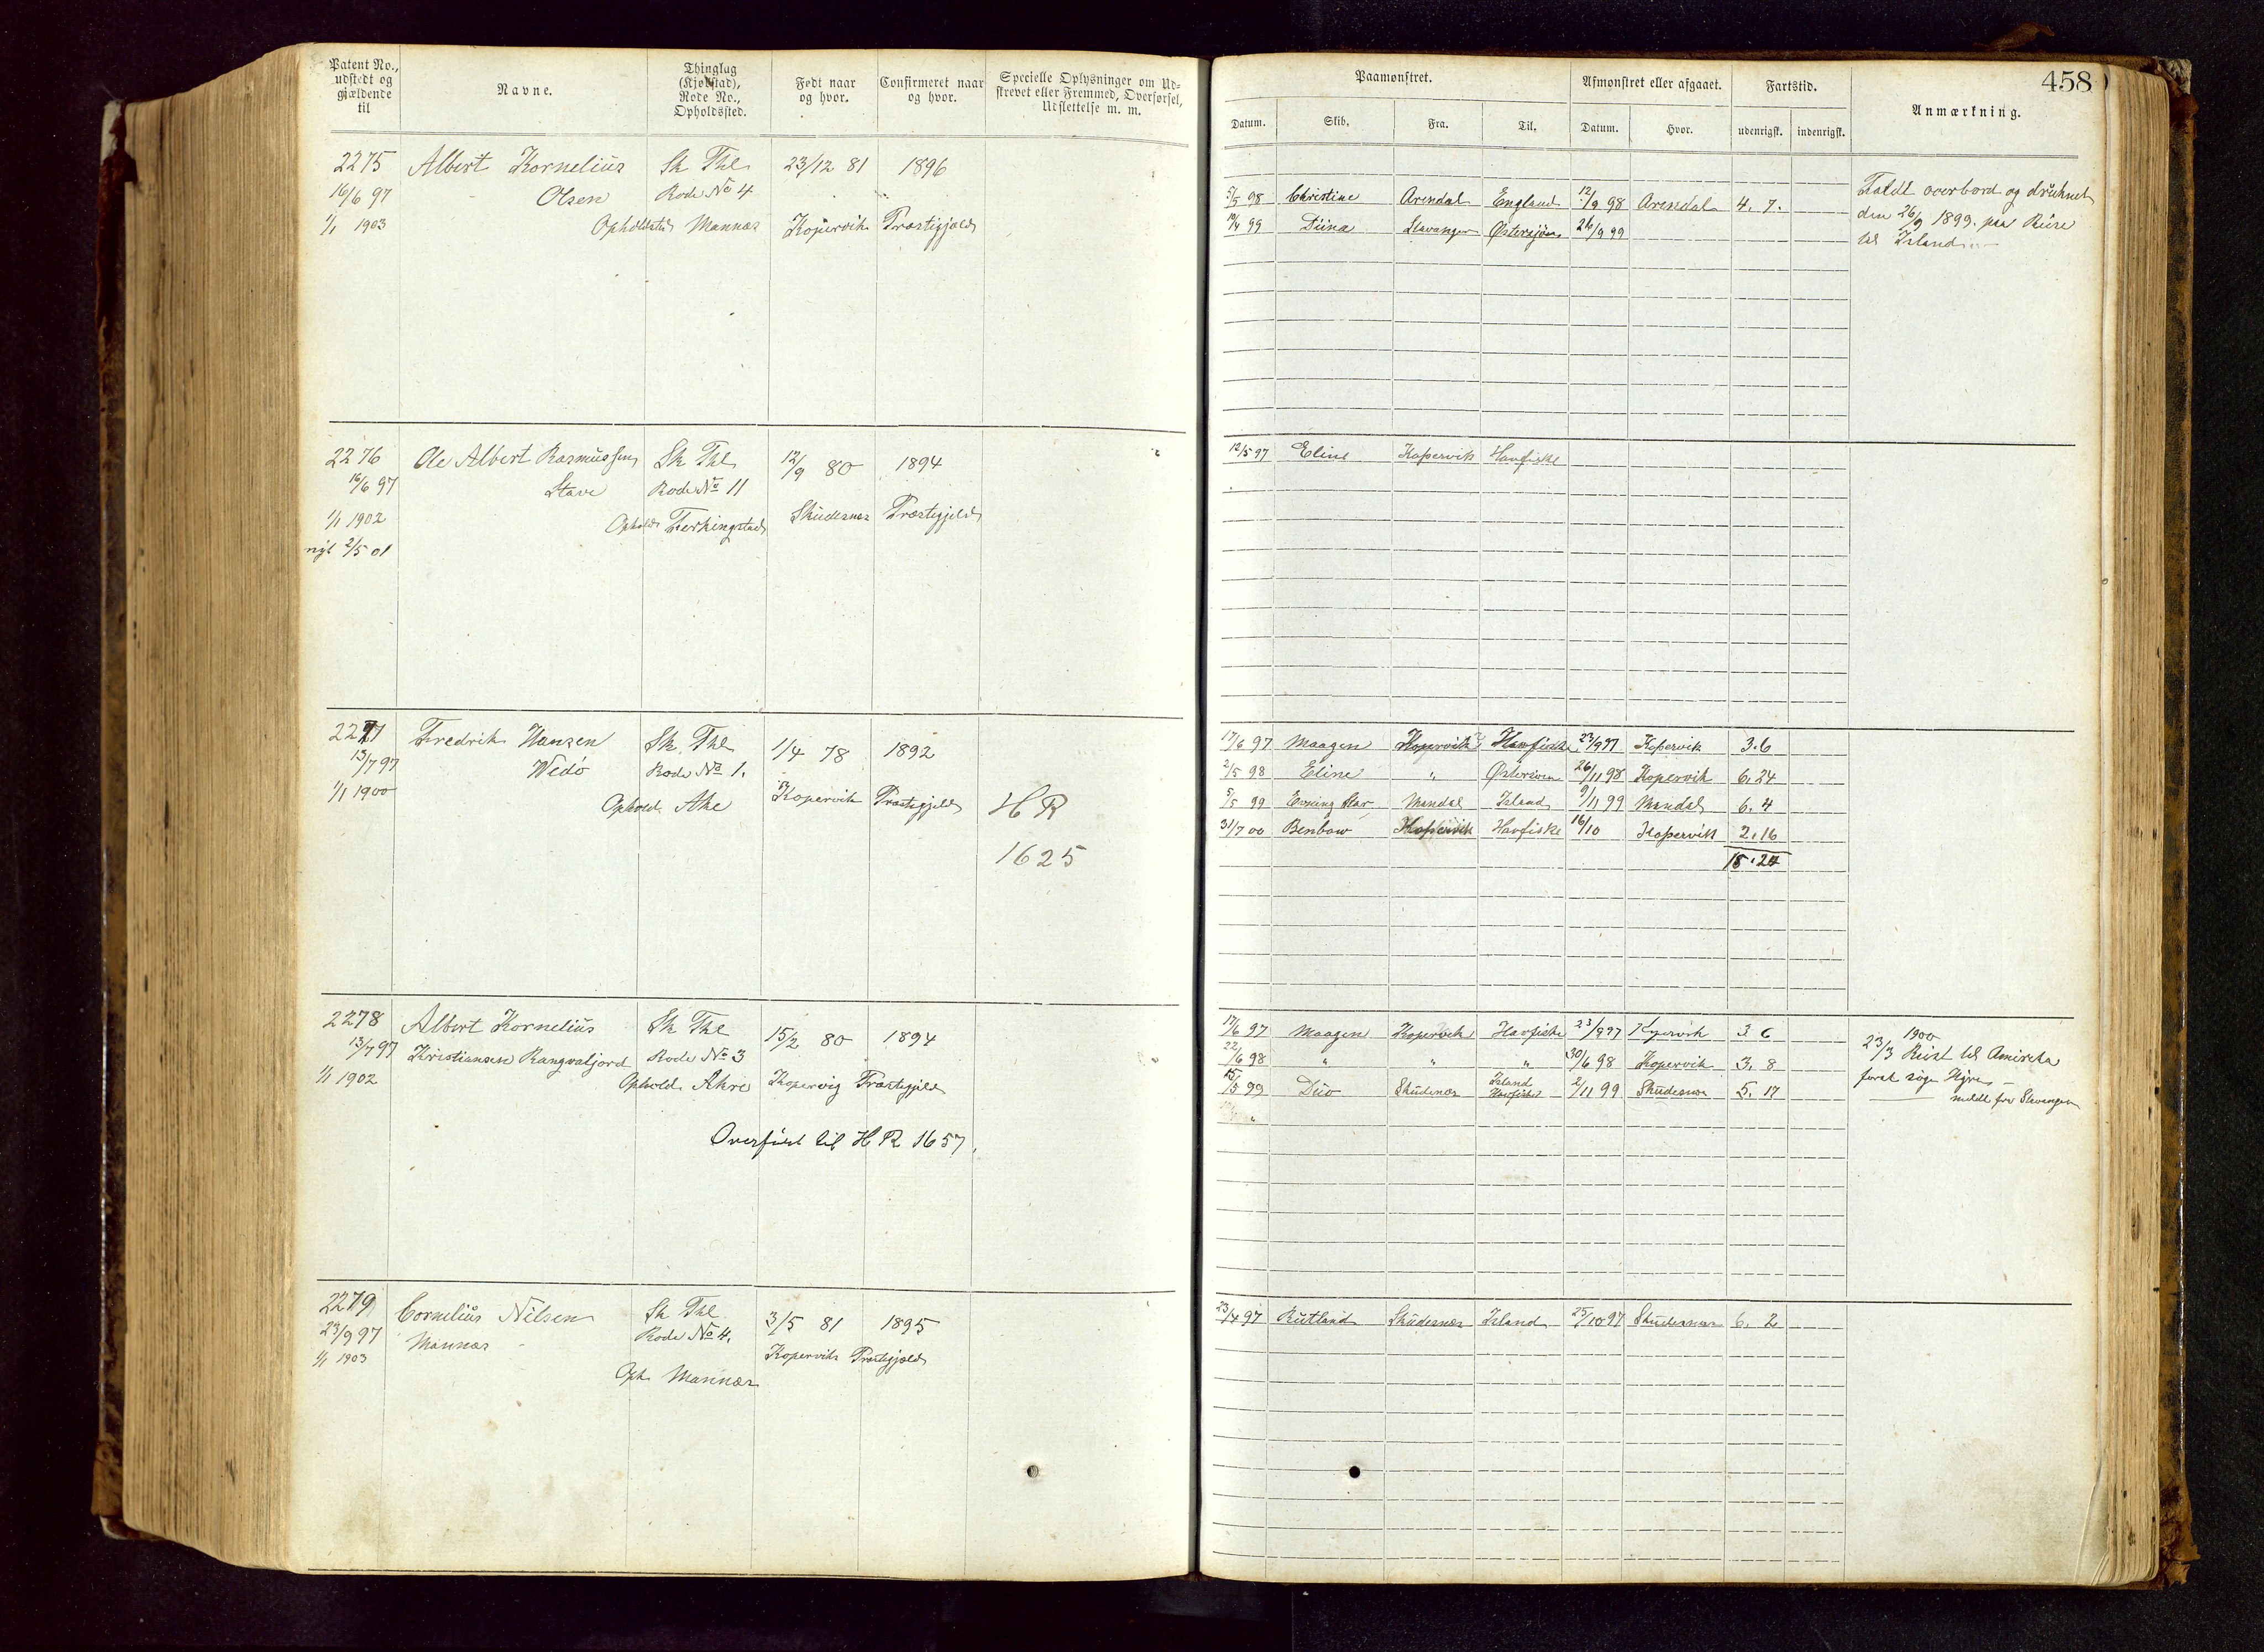 Patent No., udstedt og gjældende til
Navne.
Thinglag (Kjøbstad), Rode No., Opholdssted.
Født naar og hvor.
Confirmeret naar og hvor.
Specielle Oplysninger om Udskrevet eller Fremmed, Overførsel, Udslettelse m. m.
2275 Albert Kornelius Sk Thl 23/12 81 1896
16/6 97 Olsen Rode No 4
1/1 1903 Opholdssted Mannæs Kopervik Præstigjæld
2276 Ole Albert Rasmussen Sk Thl 12/9 80 1894
16/6 97 Stave Rode No 11
1/1 1902 Ophold Ferkingstad Skudesnæs Præstegjeld
nyt 2/5 01
2277 Fredrik Hansen Sk Thl 1/4 78 1892
13/7 97 Wedø Rode No 1.
1/1 1900 Ophold. Ake Kopervik Præstegjeld H R
1625
2278 Albert Kornelius Sk Thl 15/2 80 1894
13/7 97 Kristiansen Rangvaljord Rode No 3
1/1 1902 Ophold. Ahre Kopervig Præstegjeld
Overført til H R 1657.
2279 Cornelius Nilsen Sk Thl 3/5 81 1895
23/9 97 Mannæs Rode No 4.
1/1 1903 Kopervik Præstegjæld
Oph. Mannæs
458
Paamønstret.
Afmønstret eller afgaaet.
Fartstid.
Anmærkning.
Datum. Skib. Fra. Til. Datum. Hvor. udenrigsk. indenrigsk.
5/5 98 Christine Arendal England 12/9 98 Arendal 4. 7.
Faldt overbord og druknet
den 26/9 1899. paa Reise
til Island
19/4 99 Diina Stavanger Østersjøen 26/9 99
12/5 97 Eline Kopervik Havfiske
17/6 97 Maagen Kopervik Havfiske 23/9 97 Kopervik 3.6
2/5 98 Eline " Østersøen 26/11 98 Kopervik 6.24
5/5 99 Evning Star Mandal Island 9/11 99 Mandal 6.4
31/7 00 Benbow Kopervik Havfiske 16/10 Kopervik 2.16
18.24
17/6 97 Maagen Kopervik Havfiske 23/9 97 Kopervik 3 6
22/6 98 " " " 30/6 98 Kopervik 3. 8
15/5 99 Duo Skudenæs Island Havfiske 2/11 99 Skudesnæs 5. 17
1900
23/3 Reist til Amireka
forat søge Hyre
meldt fra Stavanger
23/4 97 Rutland Skudesnæs Island 25/10 97 Skudesnæs 6. 2